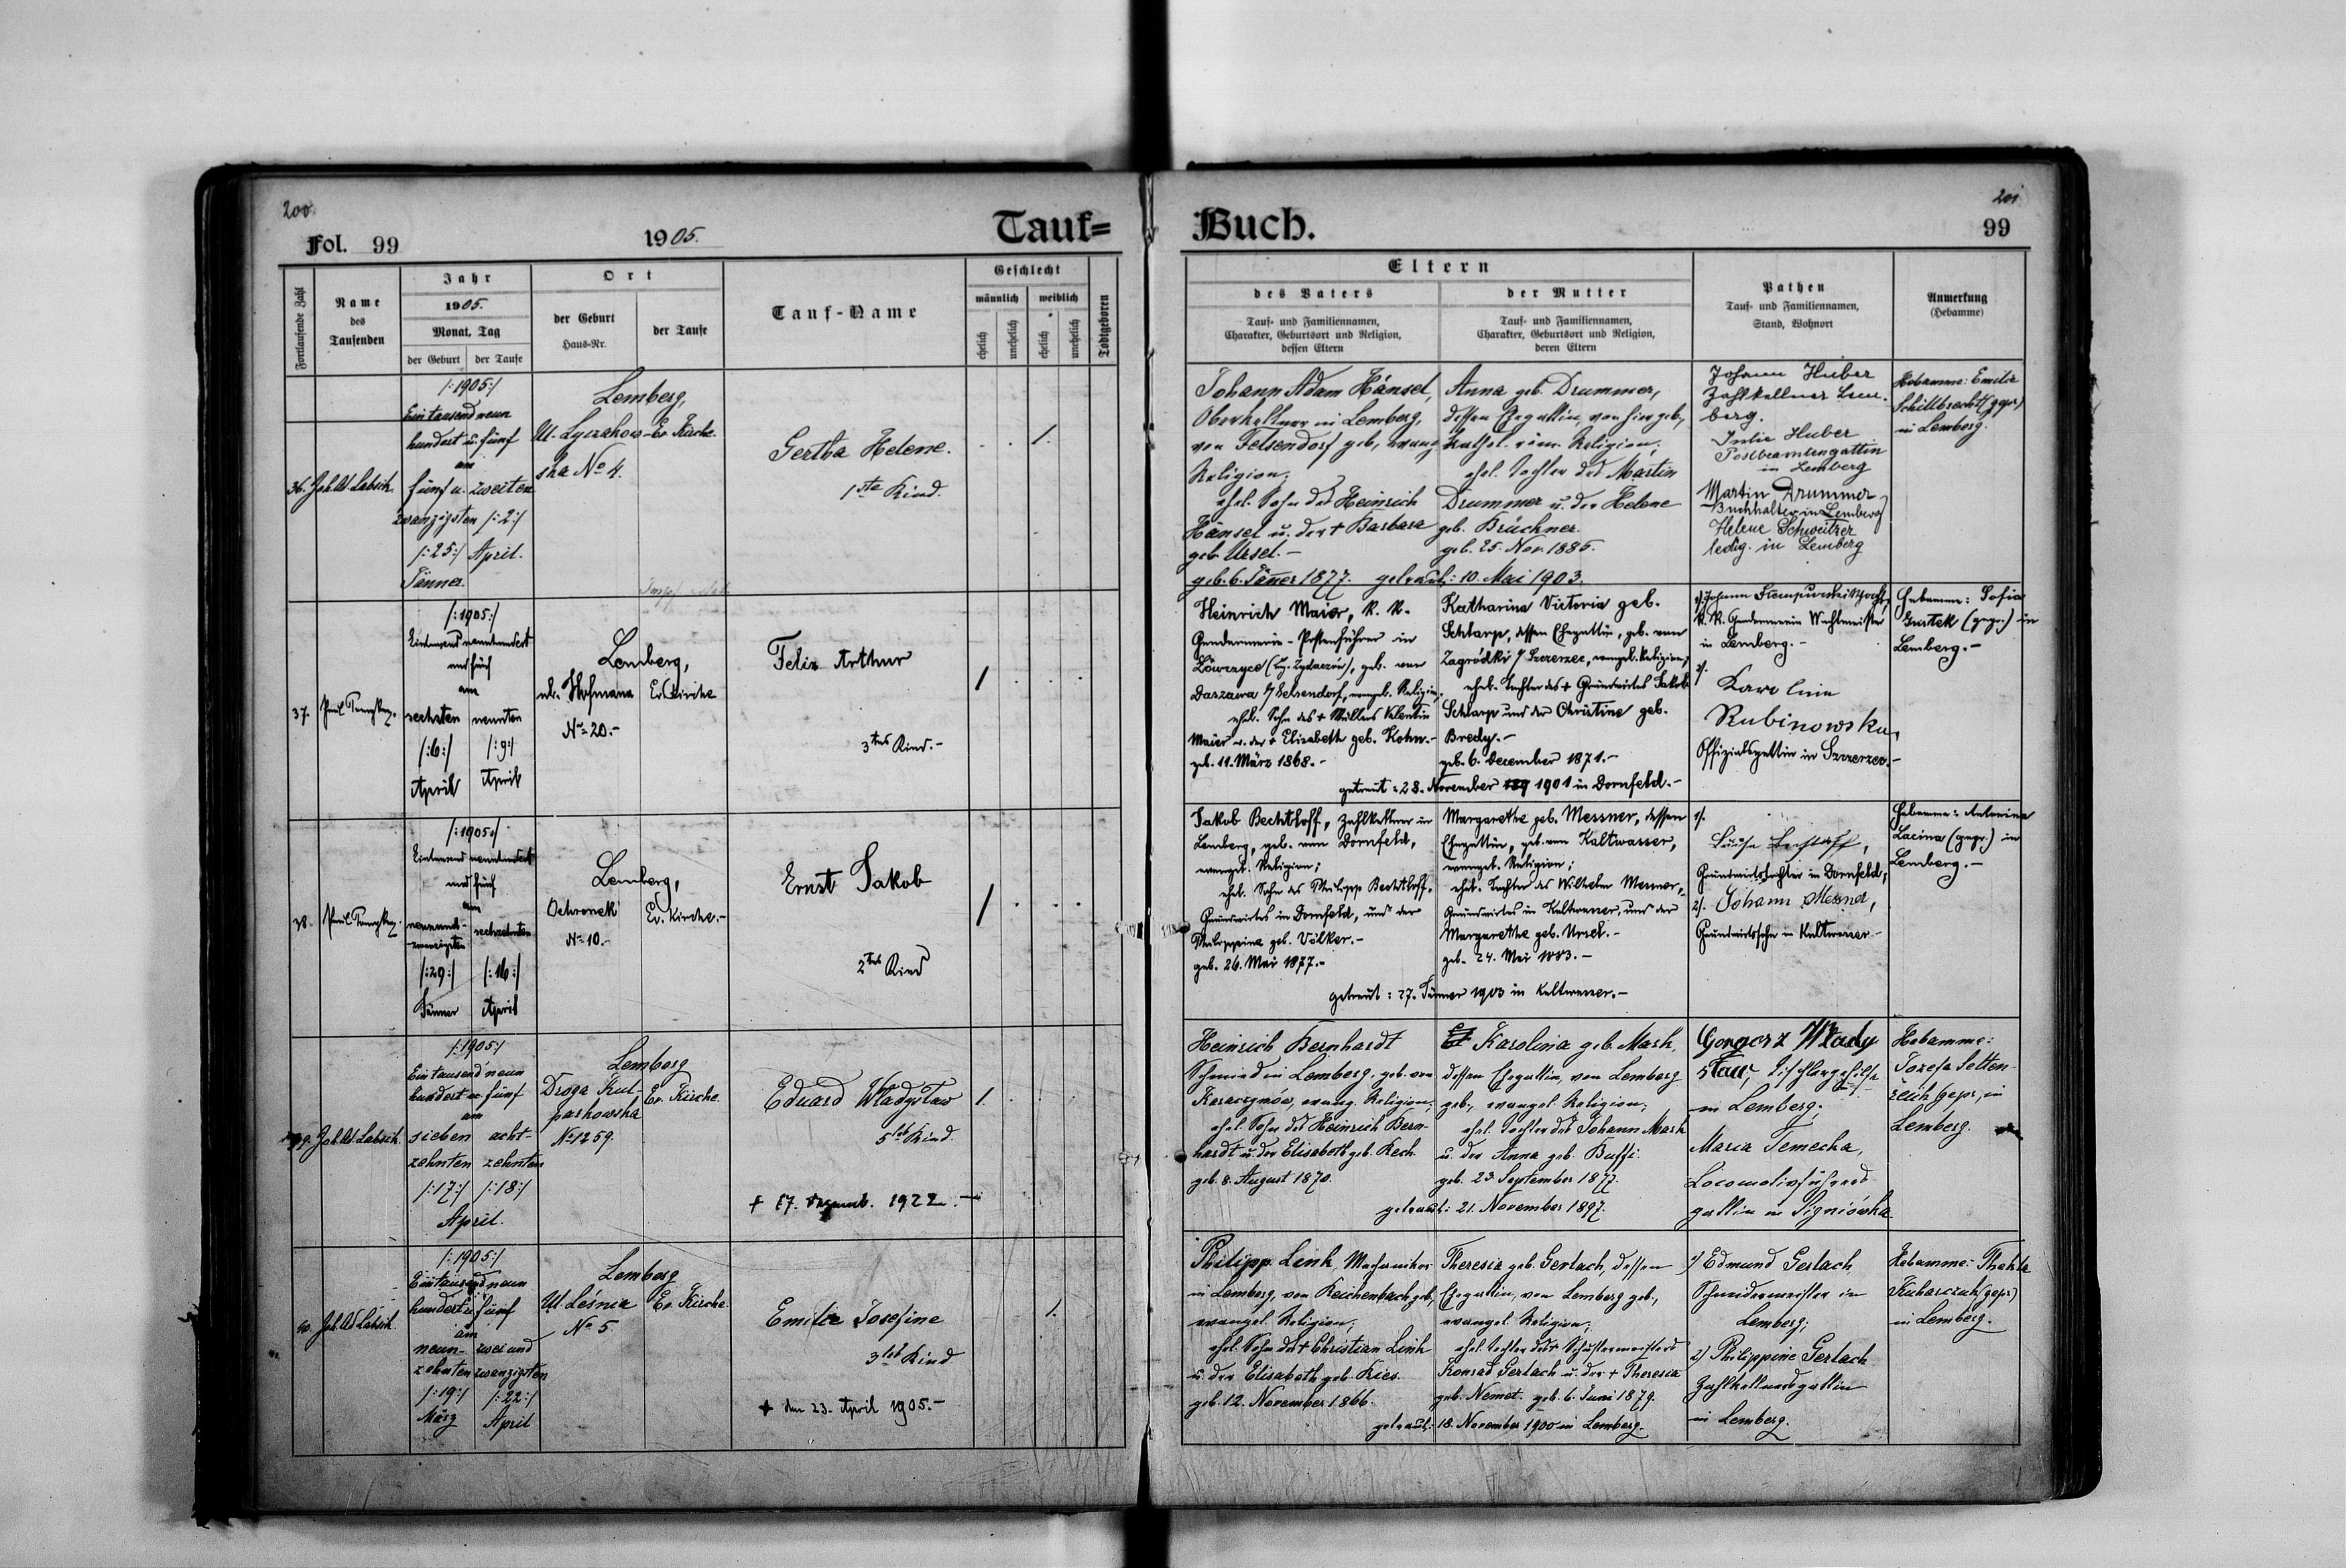 200.
Fol. 99
1905.
Tauf=
Fortlaufende Zahl
Name
des
Taufenden
Jahr
1905.
Monat, Tag
der Geburt
der Taufe
Ort
der Geburt
Haus-Nr.
der Taufe
Tauf-Name
Geschlecht
männlich
weiblich
ehelich
unehelich
ehelich
unehelich
Todtgeboren
/:1905:/
Ein tausend neun
hundert u. fünf
am
36. Joh. Ad. Labsik.
fünf u. zweiten
zwanzigsten /:2:/
/:25:/ April.
Jänner.
Lemberg,
Ul. Lyczakow- Ev. Kirche.
ska No 4.
Gertha Helene.
1ste Kind.
1.
/:1905:/
Eintausend neunhundert
und fünf
am
37.
sechsten neunten
/:6:/ /:9:/
April April
Lemberg,
ul. Hofmana Ev. Kirche
No 20.-
Felix Arthur
3tes Kind.-
1
/:1905:/
Eintausend neunhundert
und fünf
am
38.
neunund- sechzehnten
zwanzigsten
/:29:/ /:16:/
Jänner April
Lemberg,
Ochronek Ev. Kirche.-
No 10.-
Ernst Jakob
2tes Kind
1
/:1905:/
Ein tausend neun
hundert u. fünf
am
39. Joh. Ad. Labsik.
sieben acht-
zehnten zehnten
/:17:/ /:18:/
April.
Lemberg
Droga Kul- Ev. Kirche.
parkowska
No 1259.
Eduard Władysław
5tes Kind.
1.
+ 17. Dezemb. 1922.-
/:1905:/
Ein tausend neun
hundert u. fünf
am
40. Joh. Ad. Labsik.
neun- zwei und
zehnten zwanzigsten
/:19:/ /:22:/
März April
Lemberg
Ul. Leśnia Ev. Kirche.
No 5
Emilie Josefine
3tes Kind
1.
+ den 23. April 1905.-
Buch.
201
99
Eltern
des Vaters
der Mutter
Tauf- und Familiennamen,
Charakter, Geburtsort und Religion,
dessen Eltern
Tauf- und Familiennamen,
Charakter, Geburtsort und Religion,
deren Eltern
Pathen
Tauf- und Familiennamen,
Stand, Wohnort
Anmerkung
(Hebamme)
Johann Adam Hänsel,
Oberkellner in Lemberg,
von Gelsendorf geb., evang.
Religion;
ehel. Sohn des Heinrich
Hänsel u. der + Barbara
geb. Ursel.-
geb. 6. Jänner 1877.
Anna geb. Drummer,
dessen Ehegattin, von hier geb.,
kathol. röm. Religion;
ehel. Tochter des Martin
Drummer u. der Helene
geb. Brückner.
geb. 25. Nov. 1885.
getraut: 10. Mai 1903.
Johann Huber
Zahlkellner Lem-
berg.
Julie Huber
Postbeamtengattin
in Lemberg
Martin Drummer
Buchhalter in Lemberg
Helene Schweitzer
ledig. in Lemberg
Hebamme: Emilie
Schillbrecht (gepr.)
in Lemberg.
Heinrich Maier, k. k.
Gendarmerie-Postenführer in
Daszawa Gelsendorf, evangel. Religion;
ehel. Sohn des + Müllers Valentin
Maier u. der + Elisabeth geb. Kohn.-
geb. 11. März 1868.-
Katharina Victoria geb.
Schlarp, dessen Ehegattin, geb. von
Zagródki Szczerzec, evangel. Religion;
ehel. Tochter des + Grundwirtes Jakob
Schlarp und der Christine geb.
Bredy.-
geb. 6. December 1871.-
getraut: 28. November 1901 in Dornfeld.-
k. k. Gendarmerie Wachtmeister
in Lemberg.-
2).
Karolina
Rubinowska,
Offizialsgattin in Szczerzec.-
Hebamme: Sofia
(gepr.) in
Lemberg.-
Jakob Bechtloff, Zahlkellner in
Lemberg, geb. von Dornfeld,
evangel. Religion;
ehel. Sohn des Philipp Bechtloff,
Grundwirtes in Dornfeld, und der
Philippine geb. Völker.-
geb. 26. Mai 1877.-
Margarethe geb. Messner, dessen
Ehegattin, geb. von Kaltwasser,
evangel. Religion;
ehel. Tochter des Wilhelm Messner,
Grundwirtes in Kaltwasser, und der
Margarethe geb. Ursel.-
geb. 24. Mai 1883.-
getraut: 27. Jänner 1903 in Kaltwasser.-
1).
Grundwirtstochter in Dornfeld,
2). Johann Messner,
Grundwirtssohn in Kaltwasser.-
Hebamme: Antonina
Lacina (gepr.) in
Lemberg.-
Heinrich Bernhardt
Schmied in Lemberg, geb. von
Karaczynów, evang. Religion;
ehel. Sohn des Heinrich Bern-
hardt u. der Elisabeth geb. Rech.
geb. 8. August 1870.
Karolina geb. Mark,
dessen Ehegattin, von Lemberg
geb., evangel. Religion;
ehel. Tochter des Johann Mark
u. der Anna geb. Buffi.
geb. 23. September 1877.
getraut: 21. November 1897.
Gongorz Włady
sław, Tischlergehilfe
in Lemberg.
Maria Semecka,
Locomotivführers
gattin in Signiówka
Hebamme:
Josefa Selten-
reich (gepr.) in
Lemberg.
Philipp Link, Mechaniker
in Lemberg, von Reichenbach geb.,
evangel. Religion;
ehel. Sohn des + Christian Link
u. der Elisabeth geb. Kies.
geb. 12. November 1866.
Theresia geb. Gerlach, dessen
Ehegattin, von Lemberg geb.,
evangel. Religion;
ehel. Tochter des + Schustermeisters
Konrad Gerlach u. der + Theresia
geb. Nemet. geb. 6. Juni 1879.
getraut: 18. November 1900 in Lemberg.
1) Edmund Gerlach
Schneidermeister in
Lemberg;
2) Philippine Gerlach
Zahlkellnersgattin
in Lemberg.
Hebamme: Thekla
Kuharczuk (gepr.)
in Lemberg.